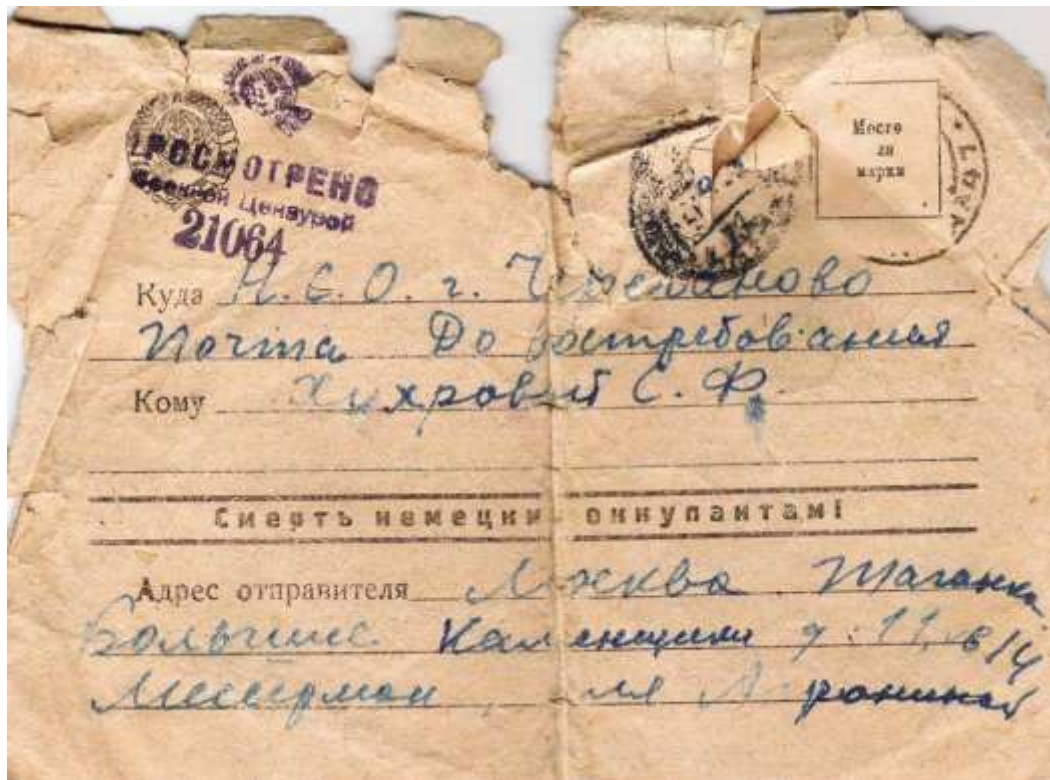 ПРОСМОТРЕНО
Военной Цензурой
21064
Место
для
марки
Куда Н.С.О. г. Черепаново
Почта До востребования
Кому С. Ф.
Смерть немецким оккупантам!
Адрес отправителя Москва Таганка
Большие Каменщики д. 11,
Арониной